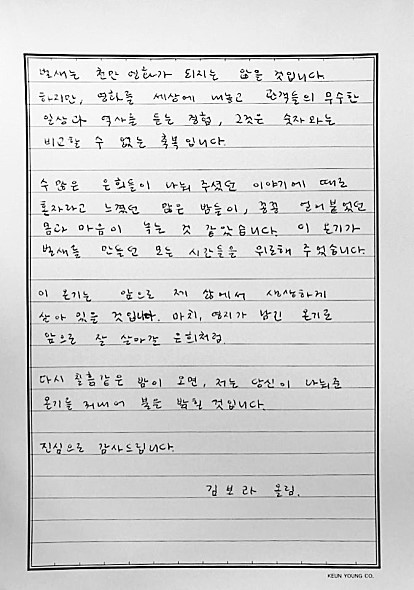 벌새는 천만 영화가 되지는 않을 것입니다.
하지만, 영화를 세상에 내놓고 관객들의 무수한
일상과 역사를 듣는 경험, 그것은 숫자와는
비교할 수 없는 축복입니다.
수 많은 은희들이 나눠 주셨던 이야기에 때로
혼자라고 느꼈던 많은 밤들이, 꽁꽁 얼어붙었던
몸과 마음이 녹는 것 같았습니다. 이 온기가
벌새를 만들던 모든 시간들을 위로해 주었습니다.
이 온기는 앞으로 제 삶에서 생생하게
살아 있을 것입니다. 마치, 영지가 남긴 온기로
앞으로 잘 살아갈 은희처럼.
다시 칠흑같은 밤이 오면, 저는 당신이 나눠준
온기를 꺼내어 불을 밝힐 것입니다.
진심으로 감사드립니다.
김보라 올림.
KEUN YOUNG CO.